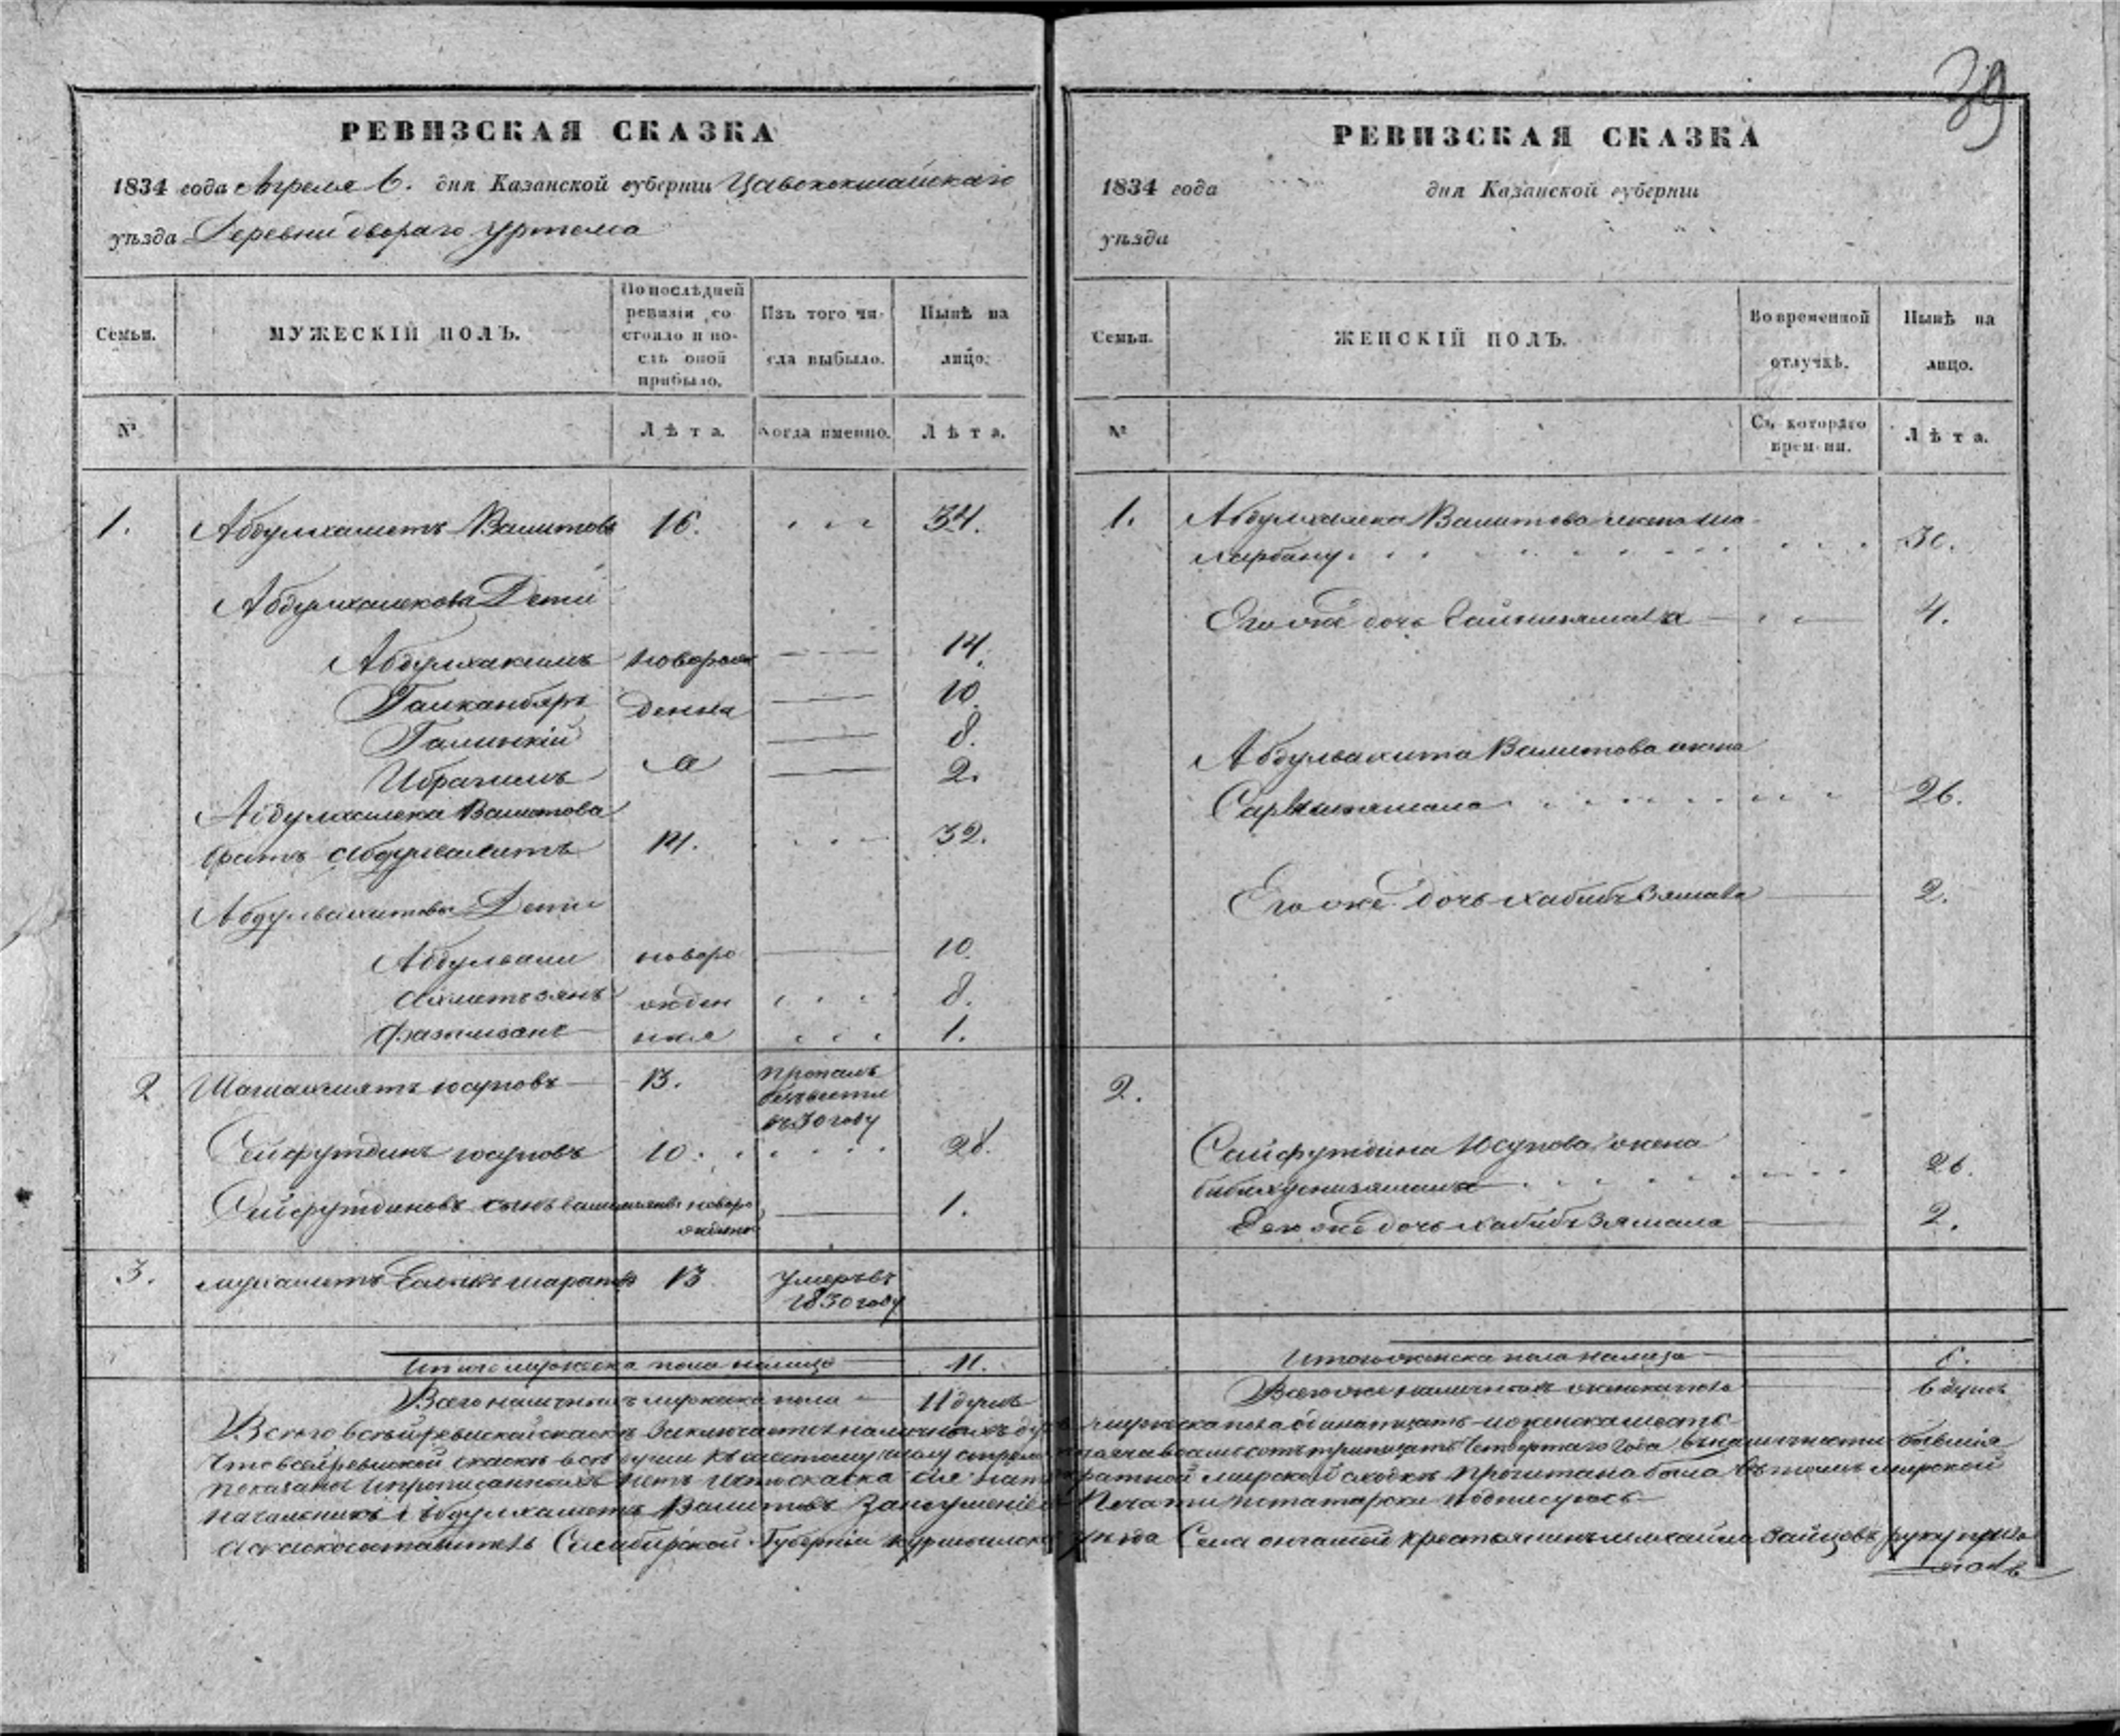 39
РЕВИЗСКАЯ СКАЗКА
1834 года Апреля 6. дня Казанской губерніи Царевококшайскаго
уѣзда Деревни Уртема
Семьи.
МУЖЕСКІЙ ПОЛЪ.
По послѣдней
ревизіи со-
стояло и по-
слѣ оной
прибыло.
Изъ того чи-
сла выбыло.
Нынѣ на
лицо.
№
Лѣта.
Когда именно.
Лѣта.
1. Абдулхалекъ Валитовъ 16. 34.
Абдулхалекова Дети
Абдулхакимъ новорож 14.
денна 10.
8.
Ибрагимъ я 2.
Абдулхалека Валитова
братъ Абдулвахитъ 14. 32.
Абдулвахитовы Дети
Абдулвали новоро 10.
Ахметьзянъ жден 8.
ныя 1.
2 Шагиахметъ Юсуповъ 13. пропалъ
безъвести
въ 30 году
Сейфутдинъ Юсуповъ 10. 28.
Сейфутдиновъ сынъ новоро 1.
жденъ
3. Мухаметъ 13 умеръ въ
1830 году
Итого мужеска пола налицо 11.
Всего наличныхъ мужеска пола 11 душъ
РЕВИЗСКАЯ СКАЗКА
1834 года дня Казанской губерніи
уѣзда
Семьи.
ЖЕНСКІЙ ПОЛЪ.
Во временной
отлучкѣ.
Нынѣ на
лицо.
№
Съ котораго
времени.
Лѣта.
1. Абдулхалека Валитова жена
30.
Его же дочь 4.
Абдулвахита Валитова жена
26.
Его же дочь Хабибзямала 2.
2.
Сайфутдина Юсупова жена
26.
Его же дочь Хабибзямала 2.
Итого женска пола налицо 6.
Всего же наличныхъ женска пола 6 душъ
Всего в сей ревиской скаске заключаетъ наличныхъ душъ мужеска пола одинатцать и женска шесть
Что в сей ревиской скаске все души къ шестому числу апреля тысяча восемьсотъ тритцать Четвертаго года въ наличности бывшия
показаны и прописанныхъ нетъ и что скаска сия мирской сходке прочитана была въ томъ мирской
начальникъ Абдулхалекъ Валитовъ за неумениемъ Печати потатарски подписуюсь
скаскосоставитель Симбирской Губерніи Курмышскаго уезда Села крестьянинъ Михайла Зайцовъ руку прило
жилъ